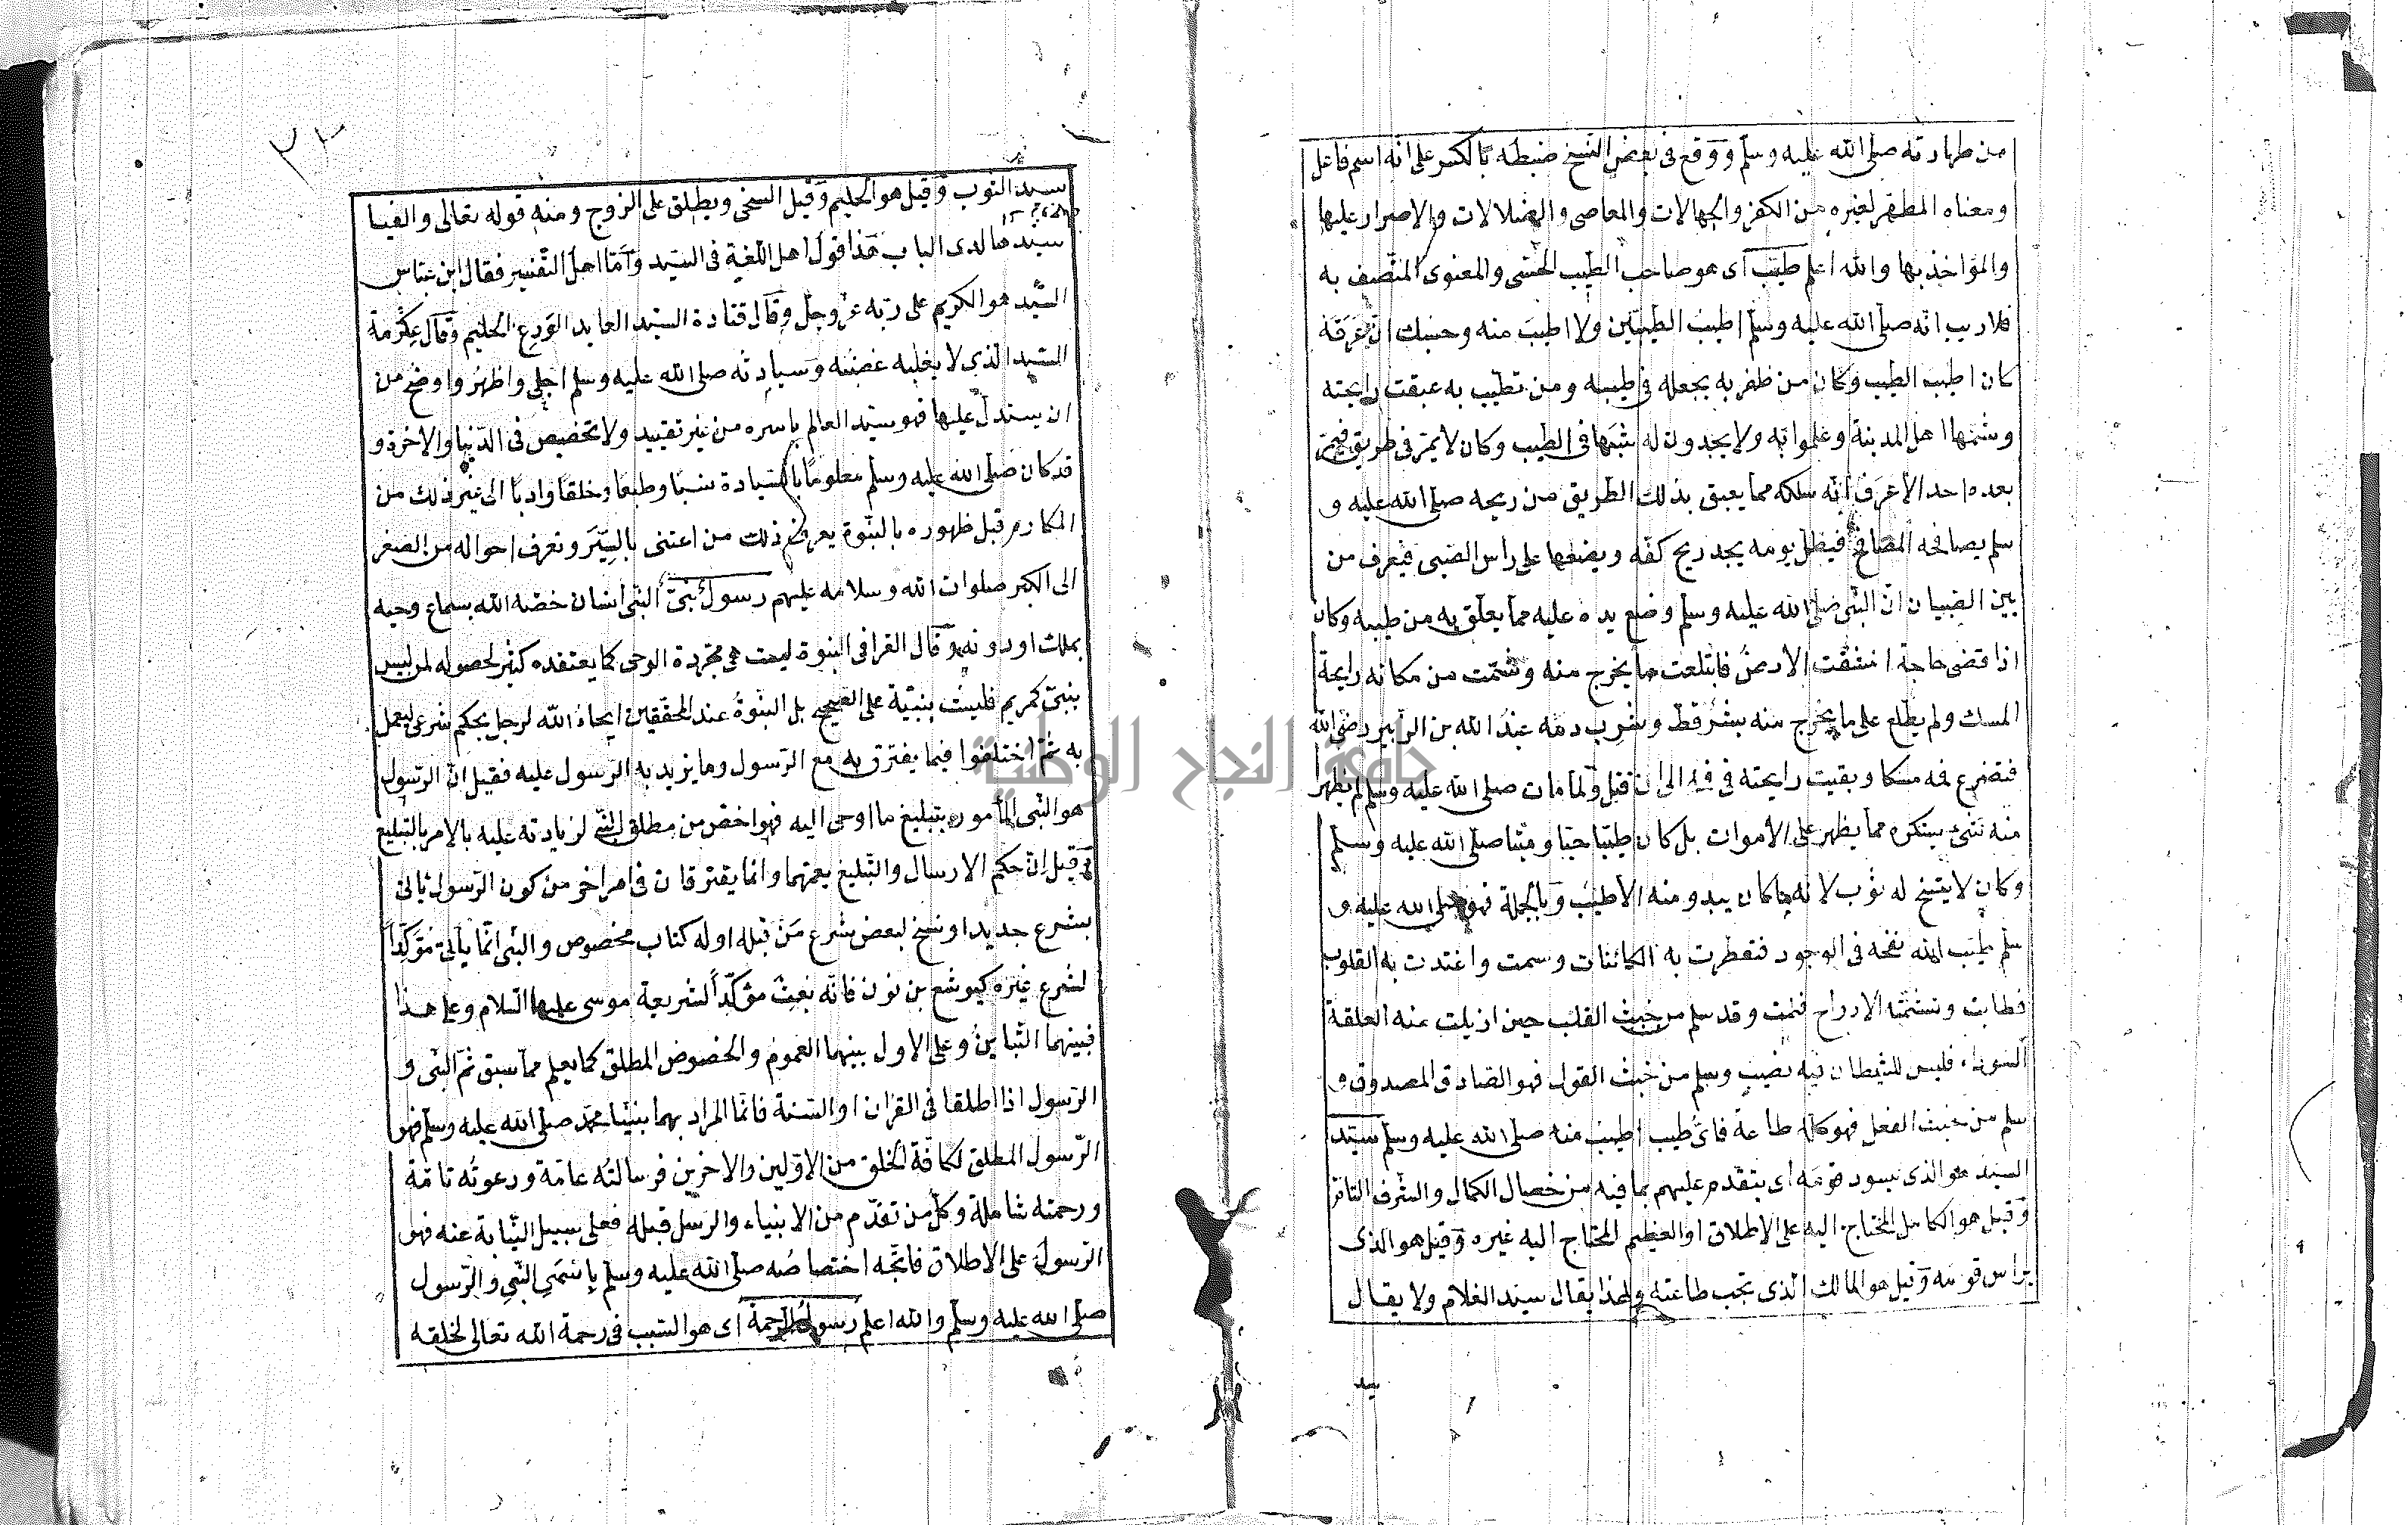 من طهارته صلى الله عليه وسلم ووقع فى بعض النسخ ضبطه بالكسر على انه اسم فاعل
ومعناه المطهر لغيره من الكفر والجهالات والمعاصى والضلالات والاصرار عليها
والمؤاخذ بها والله اعلم طيب اى هو صاحب الطيب الحسى والمعنوى المتصف به
فلا ريب انه صلى الله عليه وسلم اطيب الطيبين ولا اطيب منه وحسبك ان عرقه
كان اطيب الطيب وكان من ظفر به يجعله فى طيبه ومن تطيب به عبقت رايحته
وشمها اهل المدينة وعلموا به ولا يجدون له شبها فى الطيب وكان لا يمر فى طريق فيمر
بعده احد الا عرف انه سلكه مما يعبق بذلك الطريق من ريحه صلى الله عليه و
سلم يصافحه المصافح فيظل يومه يجد ريح كفه ويضعها على راس الصبى فيعرف من
بين الصبيان ان النبى صلى الله عليه وسلم وضع يده عليه مما يعلق به من طيبه وكان
اذا قضى حاجة انشقت الارض فابتلعت ما يخرج منه وشمت من مكانه رايحة
المسك ولم يطلع على ما يخرج منه بشر قط وشرب دمه عبد الله بن الزبير رضى الله
فتضرع فمه مسكا وبقيت رايحته فى فيه الى ان قتل ولما مات صلى الله عليه وسلم لم يظهر
منه شئ يستكره مما يظهر على الاموات بل كان طيبا حيا وميتا صلى الله عليه وسلم
وكان لا يتسخ له ثوب لانه ما كان يبدو منه الا طيب وبالجملة فهو صلى الله عليه و
سلم طيب الله نفحه فى الوجود فتعطرت به الكائنات وسمت واغتدت به القلوب
فطابت وتنشمته الارواح فنمت وقد سلم من خبث القلب حين ازيلت عنه العلقة
السوداء فليس للشيطان فيه نصيب وسلم من خبث القول فهو الصادق المصدوق و
سلم من خبث الفعل فهو كله طاعة فاى طيب اطيب منه صلى الله عليه وسلم سيد
السيد هو الذى يسود قومه اى يتقدم عليهم بما فيه من خصال الكمال والشرف التام
وقيل هو الكامل المحتاج اليه على الاطلاق او العظيم المحتاج اليه غيره وقيل هو الذى
يراس قومه وقيل هو المالك الذى تجب طاعته ولهذا يقال سيد الغلام ولا يقال
سيد
٣٢
سيد الثوب وقيل هو الحليم وقيل السخى ويطلق على الزوج ومنه قوله تعالى والفيا
سيدها لدى الباب هذا قول اهل اللغة فى السيد واما اهل التفسير فقال ابن عباس
السيد هو الكريم على ربه عز وجل وقال قتادة السيد العابد الورع الحليم وقال عكرمة
السيد الذى لا يغلبه غضبه وسيادته صلى الله عليه وسلم اجلى واظهر واوضح من
ان يستدل عليها فهو سيد العالم باسره من غير تقييد ولا تخصيص فى الدنيا والاخرة و
قد كان صلى الله عليه وسلم معلوما بالسيادة نسبا وطبعا وخلقا وادبا الى غير ذلك من
المكارم قبل ظهوره بالنبوة يعرف ذلك من اعتنى بالسير وتعرف احواله من الصغر
الى الكبر صلوات الله وسلامه عليهم رسول نبى النبى انسان خصه الله بسماع وحيه
بملك او دونه وقال القرافى النبوة ليست هى مجردة الوحى كما يعتقده كثير لحصوله لمن ليس
بنبى كمريم فليست بنبية على الصحيح بل النبوة عند المحققين ايحاء الله لرجل بحكم شرعى ليعمل
به ثم اختلفوا فيما يفترق به مع الرسول وما يزيد به الرسول عليه فقيل ان الرسول
هو النبى المأمور بتبليغ ما اوحى اليه فهو اخص من مطلق النبى لزيادته عليه بالامر بالتبليغ
وقيل ان حكم الارسال والتبليغ يعمهما وانما يفترقان فى امر اخر من كون الرسول ياتى
بشرع جديد او نسخ لبعض شرع من قبله او له كتاب مخصوص والنبى انما ياتى مؤكدا
لشرع غيره كيوشع بن نون فانه بعث مؤكدا لشريعة موسى عليهما السلام وعلى هذا
فبينهما التباين وعلى الاول بينهما العموم والخصوص المطلق كما يعلم مما سبق ثم النبى و
الرسول اذا اطلقا فى القران او السنة فانما المراد بهما نبينا محمد صلى الله عليه وسلم فهو
الرسول المطلق لكافة الخلق من الاولين والاخرين فرسالته عامة ودعوته تامة
ورحمته شاملة وكل من تقدم من الانبياء والرسل قبله فعلى سبيل النيابة عنه فهو
الرسول على الاطلاق فاتجه اختصاصه صلى الله عليه وسلم باسمى النبى والرسول
صلى الله عليه وسلم والله اعلم رسول الرحمة اى هو السبب فى رحمة الله تعالى لخلقه
جامعة النجاح الوطنية